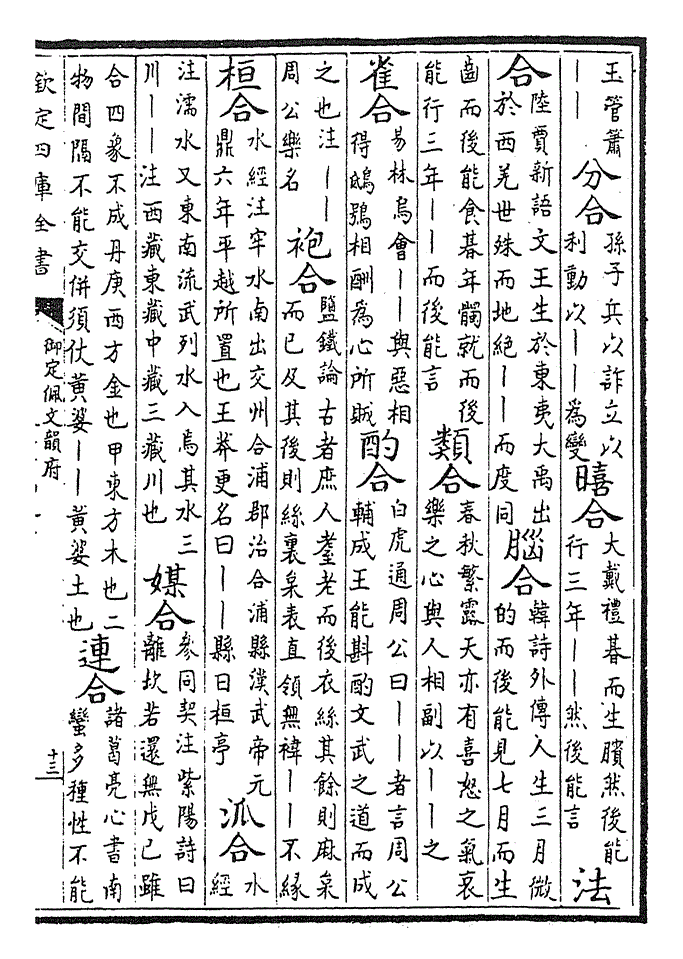 玉管簫
｜｜
分合
孫子兵以詐立以
利動以｜｜為變
暿合
大戴禮朞而生臏然後能
行三年｜｜然後能言
法
合
陸賈新語文王生於東夷大禹出
於西羌世殊而地絶｜｜而度同
腦合
韓詩外傳人生三月微
的而後能見七月而生
齒而後能食朞年髑就而後
能行三年｜｜而後能言
類合
春秋繁露天亦有喜怒之氣哀
樂之心與人相副以｜｜之
雀合
易林烏會｜｜與惡相
得鴟鴞相酬為心所賊
酌合
白虎通周公曰｜｜者言周公
輔成王能斟酌文武之道而成
之也注｜｜
周公樂名
袍合
鹽鐵論古者庶人耋老而後衣絲其餘則麻枲
而已及其後則絲裏枲表直領無褘｜｜不緣
桓合
水經注牢水南出交州合浦郡治合浦縣漢武帝元
鼎六年平越所置也王莽更名曰｜｜縣曰桓亭
泒合
水
經
注濡水又東南流武列水入焉其水三
川｜｜注西藏東藏中藏三藏川也
媒合
參同契注紫陽詩曰
離坎若還無戊己雖
合四象不成丹庚西方金也甲東方木也二
物間隔不能交併須仗黄婆｜｜黄婆土也
連合
諸葛亮心書南
蠻多種性不能
欽定四庫全書
御定佩文韻府
十三